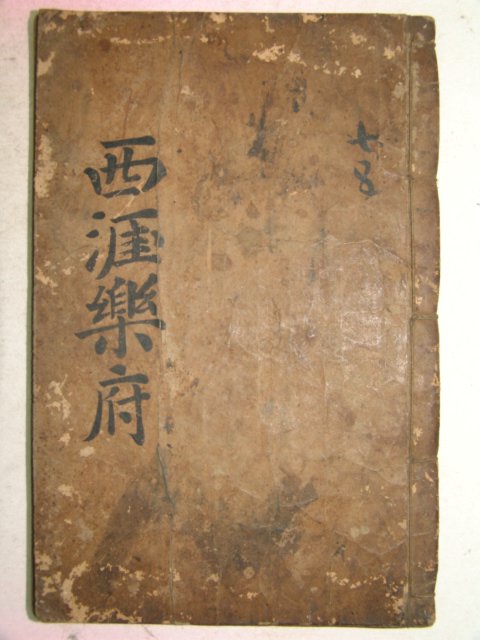 西涯樂府